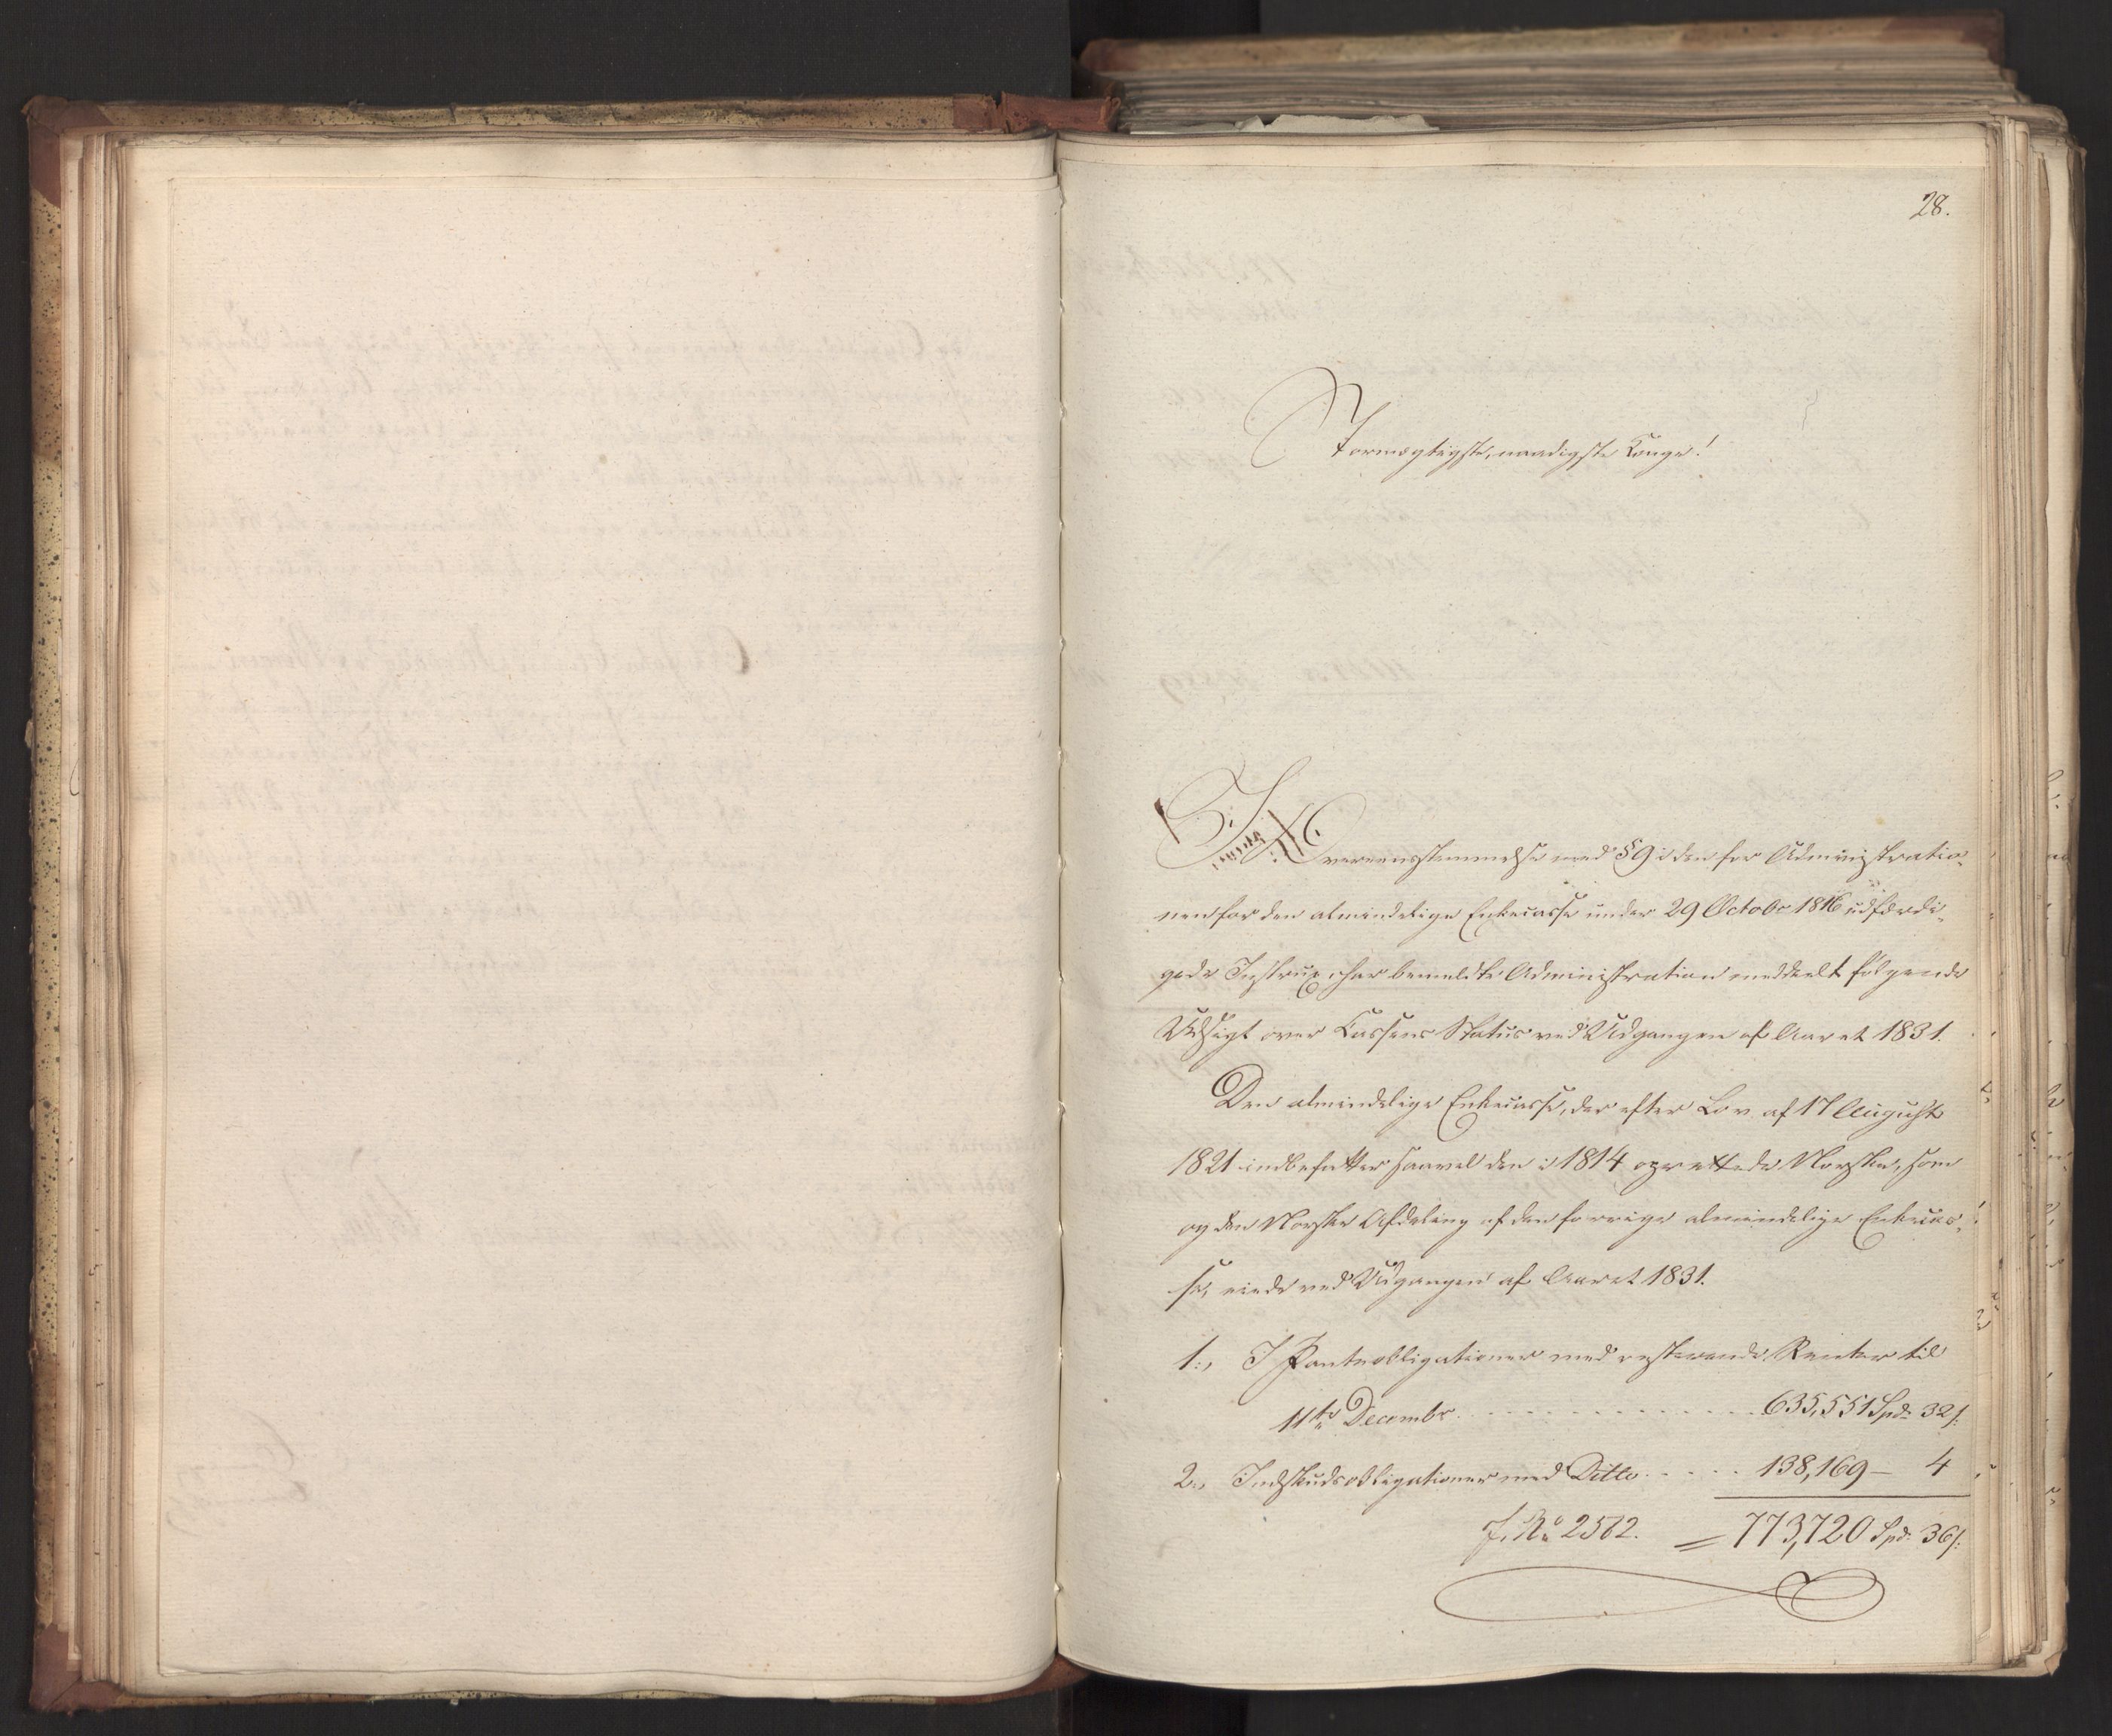 28.
Stormægtigste, naadigste Konge!
I Overeensstemmelse med § 9 i den for Administratio-
nen for den almindelige Enkecasse under 29 Octobr 1816 udfærdi-
gede Instrux, har bemeldte Administration meddeelt følgende
Udsigt over Cassens Status ved Udgangen af Aaret 1831.
Den almindelige Enkecasse, der efter Lov af 17 August
1821 indbefatter saavel den i 1814 oprettede Norske, som
og den Norske Afdeling af den forrige almindelige Enkecas-
se, eiede ved Udgangen af Aaret 1831.
1., I Panteobligationer med resterende Renter til
11te Decembr. 635,551 Spd: 32 s:
2., Indskudsobligationer med Ditto 138,169 - 4
J. No 2582. = 773,720 Spd: 36 s: